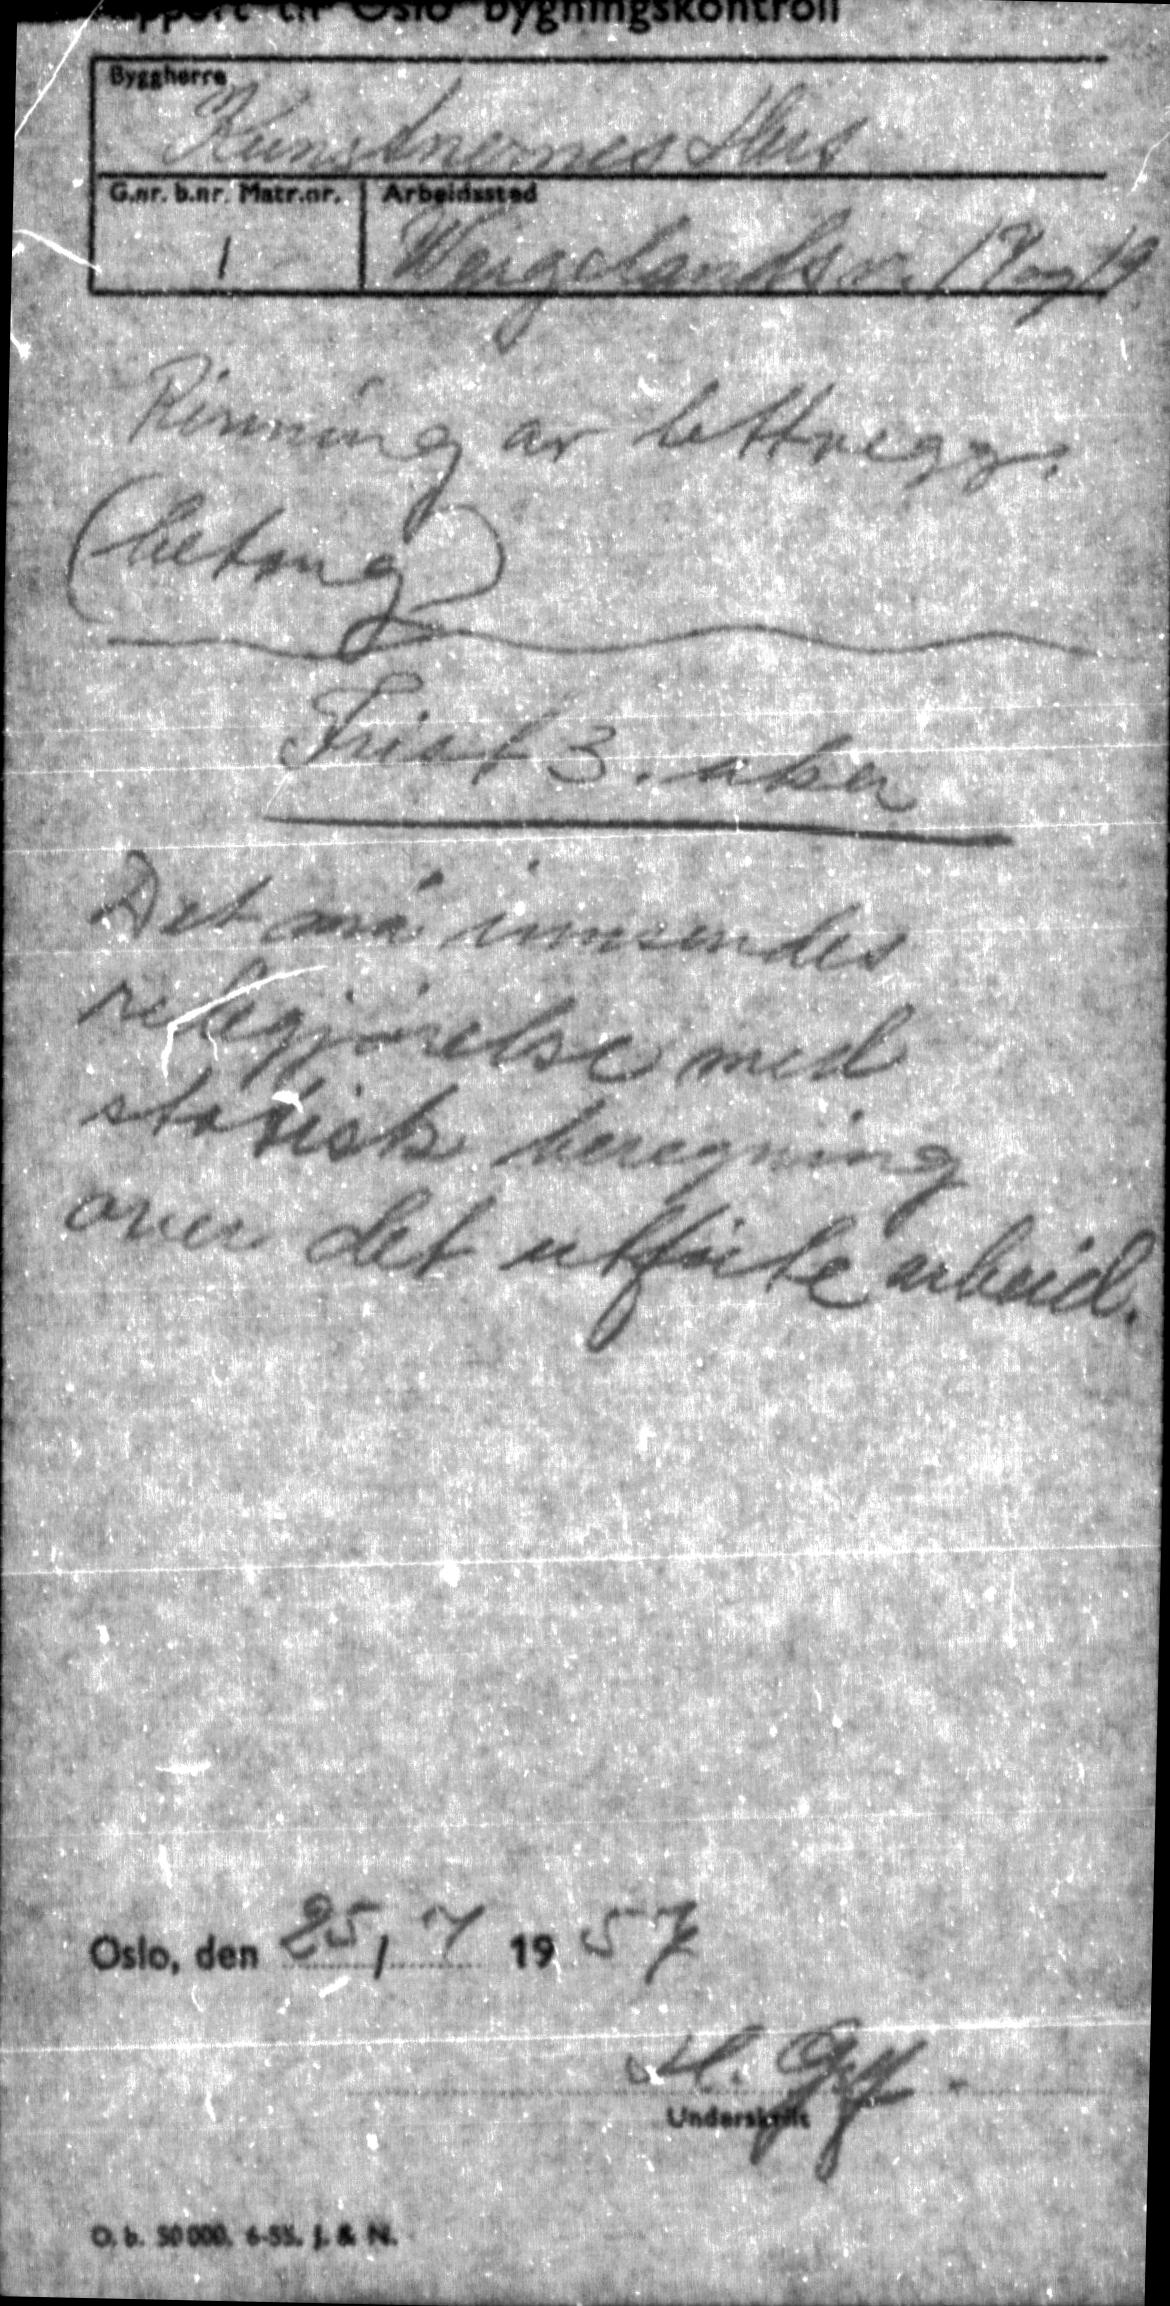 Rapport til Oslo bygningskontroll
Byggherre
Kunstnernes Hus
G.nr. b.nr. Matr.nr. Arbeidssted
1 Wergelandsv. 17 og 19
Rivning av lettvegg.
(betong)
Frist 3. uker
Det må innsendes
redegjørelse med
statisk beregning
over det utførte arbeid.
Oslo, den 25/7 1957
Underskrift
O. b. 50 000. 6-55. J. & N.